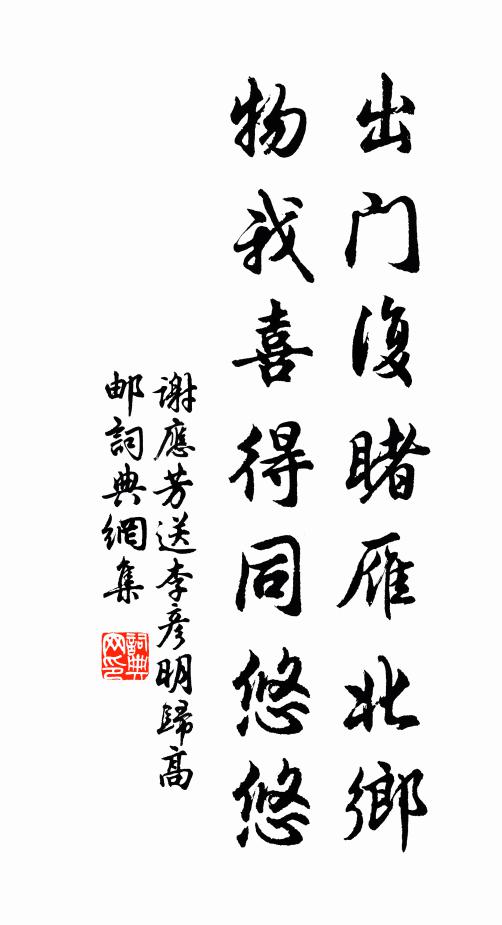 出门復睹雁北鄉
物我喜得同悠悠
谢應芳送李彦明歸高
邮詞典網集
詞典网印